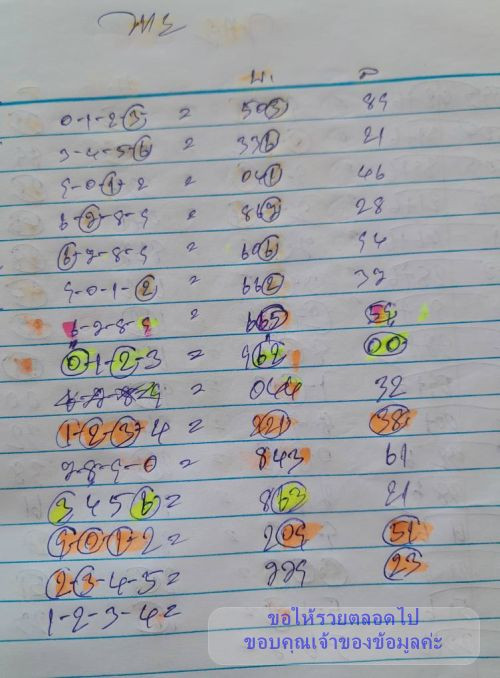 0-1-2-3 = 503 89
3-4-5-6 = 336 21
9-0-1-2 = 041 46
6-7-8-9 = 867 28
6-7-8-9 = 606 94
9-0-1-2 = 662 37
6-7-8-9 = 665 59
0-1-2-3 = 962 00
= 044 32
1-2-3-4 = 221 38
7-8-9-0 = 843 61
3 4 5 6 = 863 21
9-0-1-2 = 209 51
2-3-4-5 = 779 23
1-2-3-4 =
ขอให้รวยตลอดไป
ขอบคุณเจ้าของข้อมูลค่ะ